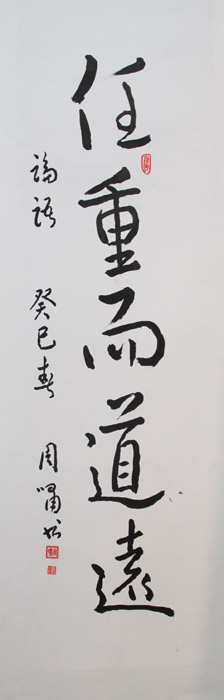 任重而道遠
論語 癸巳春 周嘯書